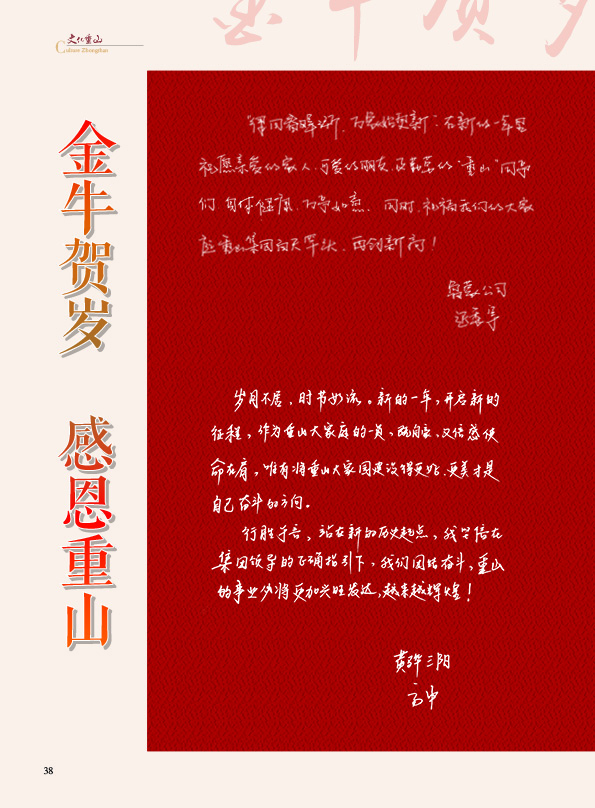 文化重山
Culture Zhongshan
金牛贺岁
金牛贺岁 感恩重山
万象始更新"。在新的一年里
祝愿亲爱的家人、可爱的朋友及勤劳的"重山"同事
们,身体健康、万事如意。同时,祝福我们的大家
庭重山集团 再创新高!
公司
岁月不居,时节如流。新的一年,开启新的
征程,作为重山大家庭的一员,既自豪、又倍感使
命在肩,唯有将重山大家园建设得更好、更美才是
自己奋斗的方向。
行胜于言,站在新的历史起点,我坚信在
集团领导的正确指引下,我们团结奋斗,重山
的事业必将更加兴旺发达,越来越辉煌!
黄骅三阳
38